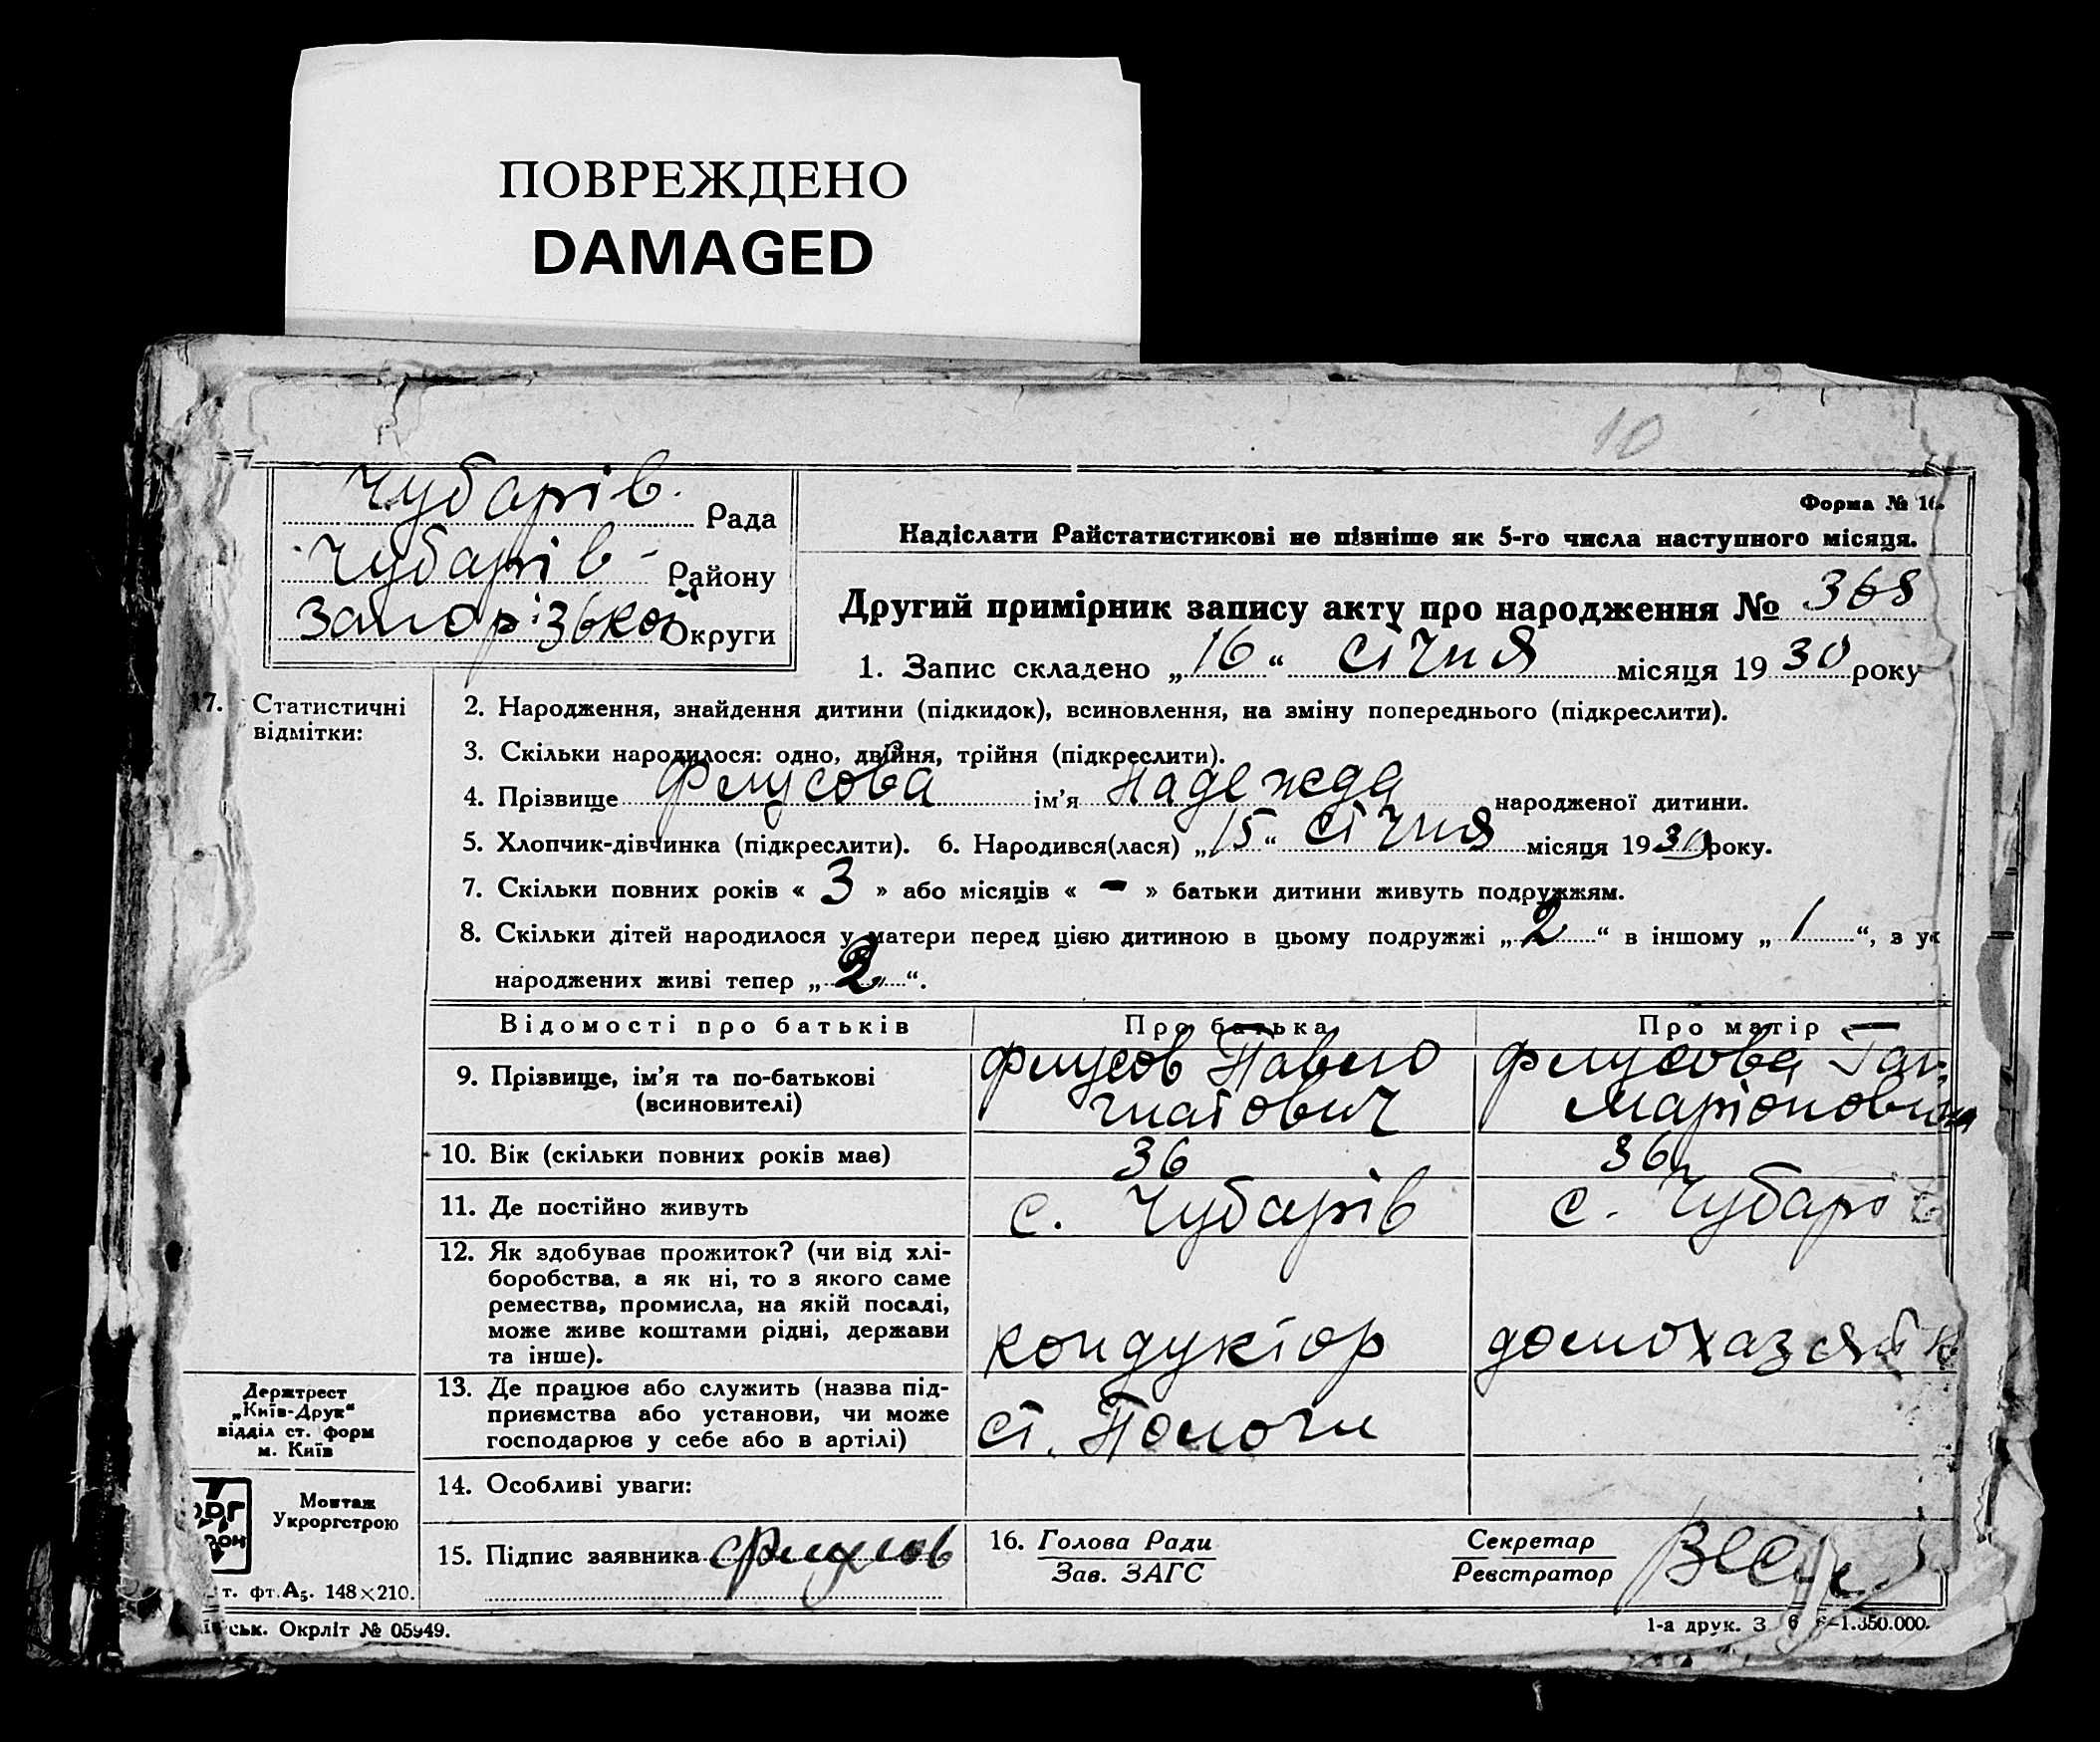 ПОВРЕЖДЕНО
DAMAGED
10
Чубарів. Рада
Чубарів- Району
Запорізької Округи
Форма № 16.
Надіслати Райстатистикові не пізніше як 5-го числа наступного місяця.
Другий примірник запису акту про народження № 368
1. Запис складено „16“ січня місяця 1930 року
17. Статистичні відмітки:
2. Народження, знайдення дитини (підкидок), всиновлення, на зміну попереднього (підкреслити).
3. Скільки народилося: одно, двійня, трійня (підкреслити).
4. Прізвище Флусова ім'я Надежда народженої дитини.
5. Хлопчик-дівчинка (підкреслити). 6. Народився(лася) „15“ січня місяця 1930 року.
7. Скільки повних років « 3 » або місяців « - » батьки дитини живуть подружжям.
8. Скільки дітей народилося у матери перед цією дитиною в цьому подружжі „2“ в іншому „1“, з ус
народжених живі тепер „2“.
Відомості про батьків Про батька Про матір
9. Прізвище, ім'я та по-батькові Флусов Павло Флусова Ган
(всиновителі) Маріоновна
10. Вік (скільки повних років має) 36 36
11. Де постійно живуть с. Чубарів с. Чубарів
12. Як здобуває прожиток? (чи від хлі-
боробства, а як ні, то з якого саме
ремества, промисла, на якій посаді,
може живе коштами рідні, держави кондуктор домохазяйк
та інше).
13. Де працює або служить (назва під-
приємства або установи, чи може ст. Пологи
господарює у себе або в артілі)
14. Особливі уваги:
15. Підпис заявника Флусов
16. Голова Ради
Зав. ЗАГС
Секретар
Реєстратор
Держтрест
„Київ-Друк“
відділ ст. форм
м. Київ
ОРГ
Монтаж
Укроргстрою
т. фт. А₅. 148×210.
ськ. Окрліт № 05949.
1-а друк. З 6 —1.350.000.